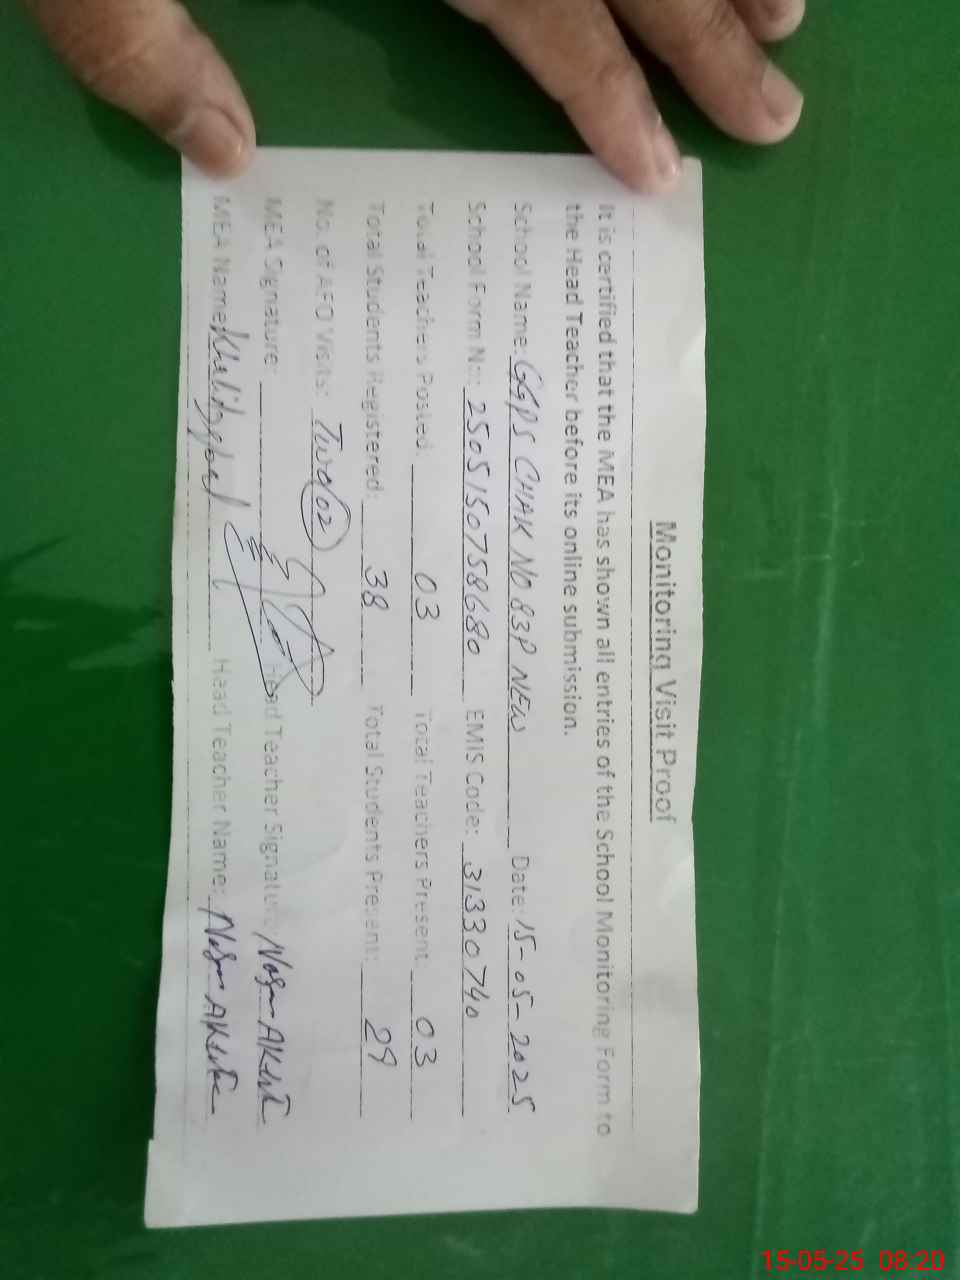 Monitoring Visit Proof
It is certified that the MEA has shown all entries of the School Monitoring Form to
the Head Teacher before its online submission.
School Name: GGPS CHAK NO 83P NEW Date: 15-05-2025
School Form No: 2505150758680 EMIS Code: 31330740
Total Teachers Posted: 03 Total Teachers Present: 03
Total Students Registered: 38 Total Students Present: 29
No. of AEO Visits: Two(02)
MEA Signature: Head Teacher Signature:
MEA Name: Head Teacher Name:
15-05-25 08:20